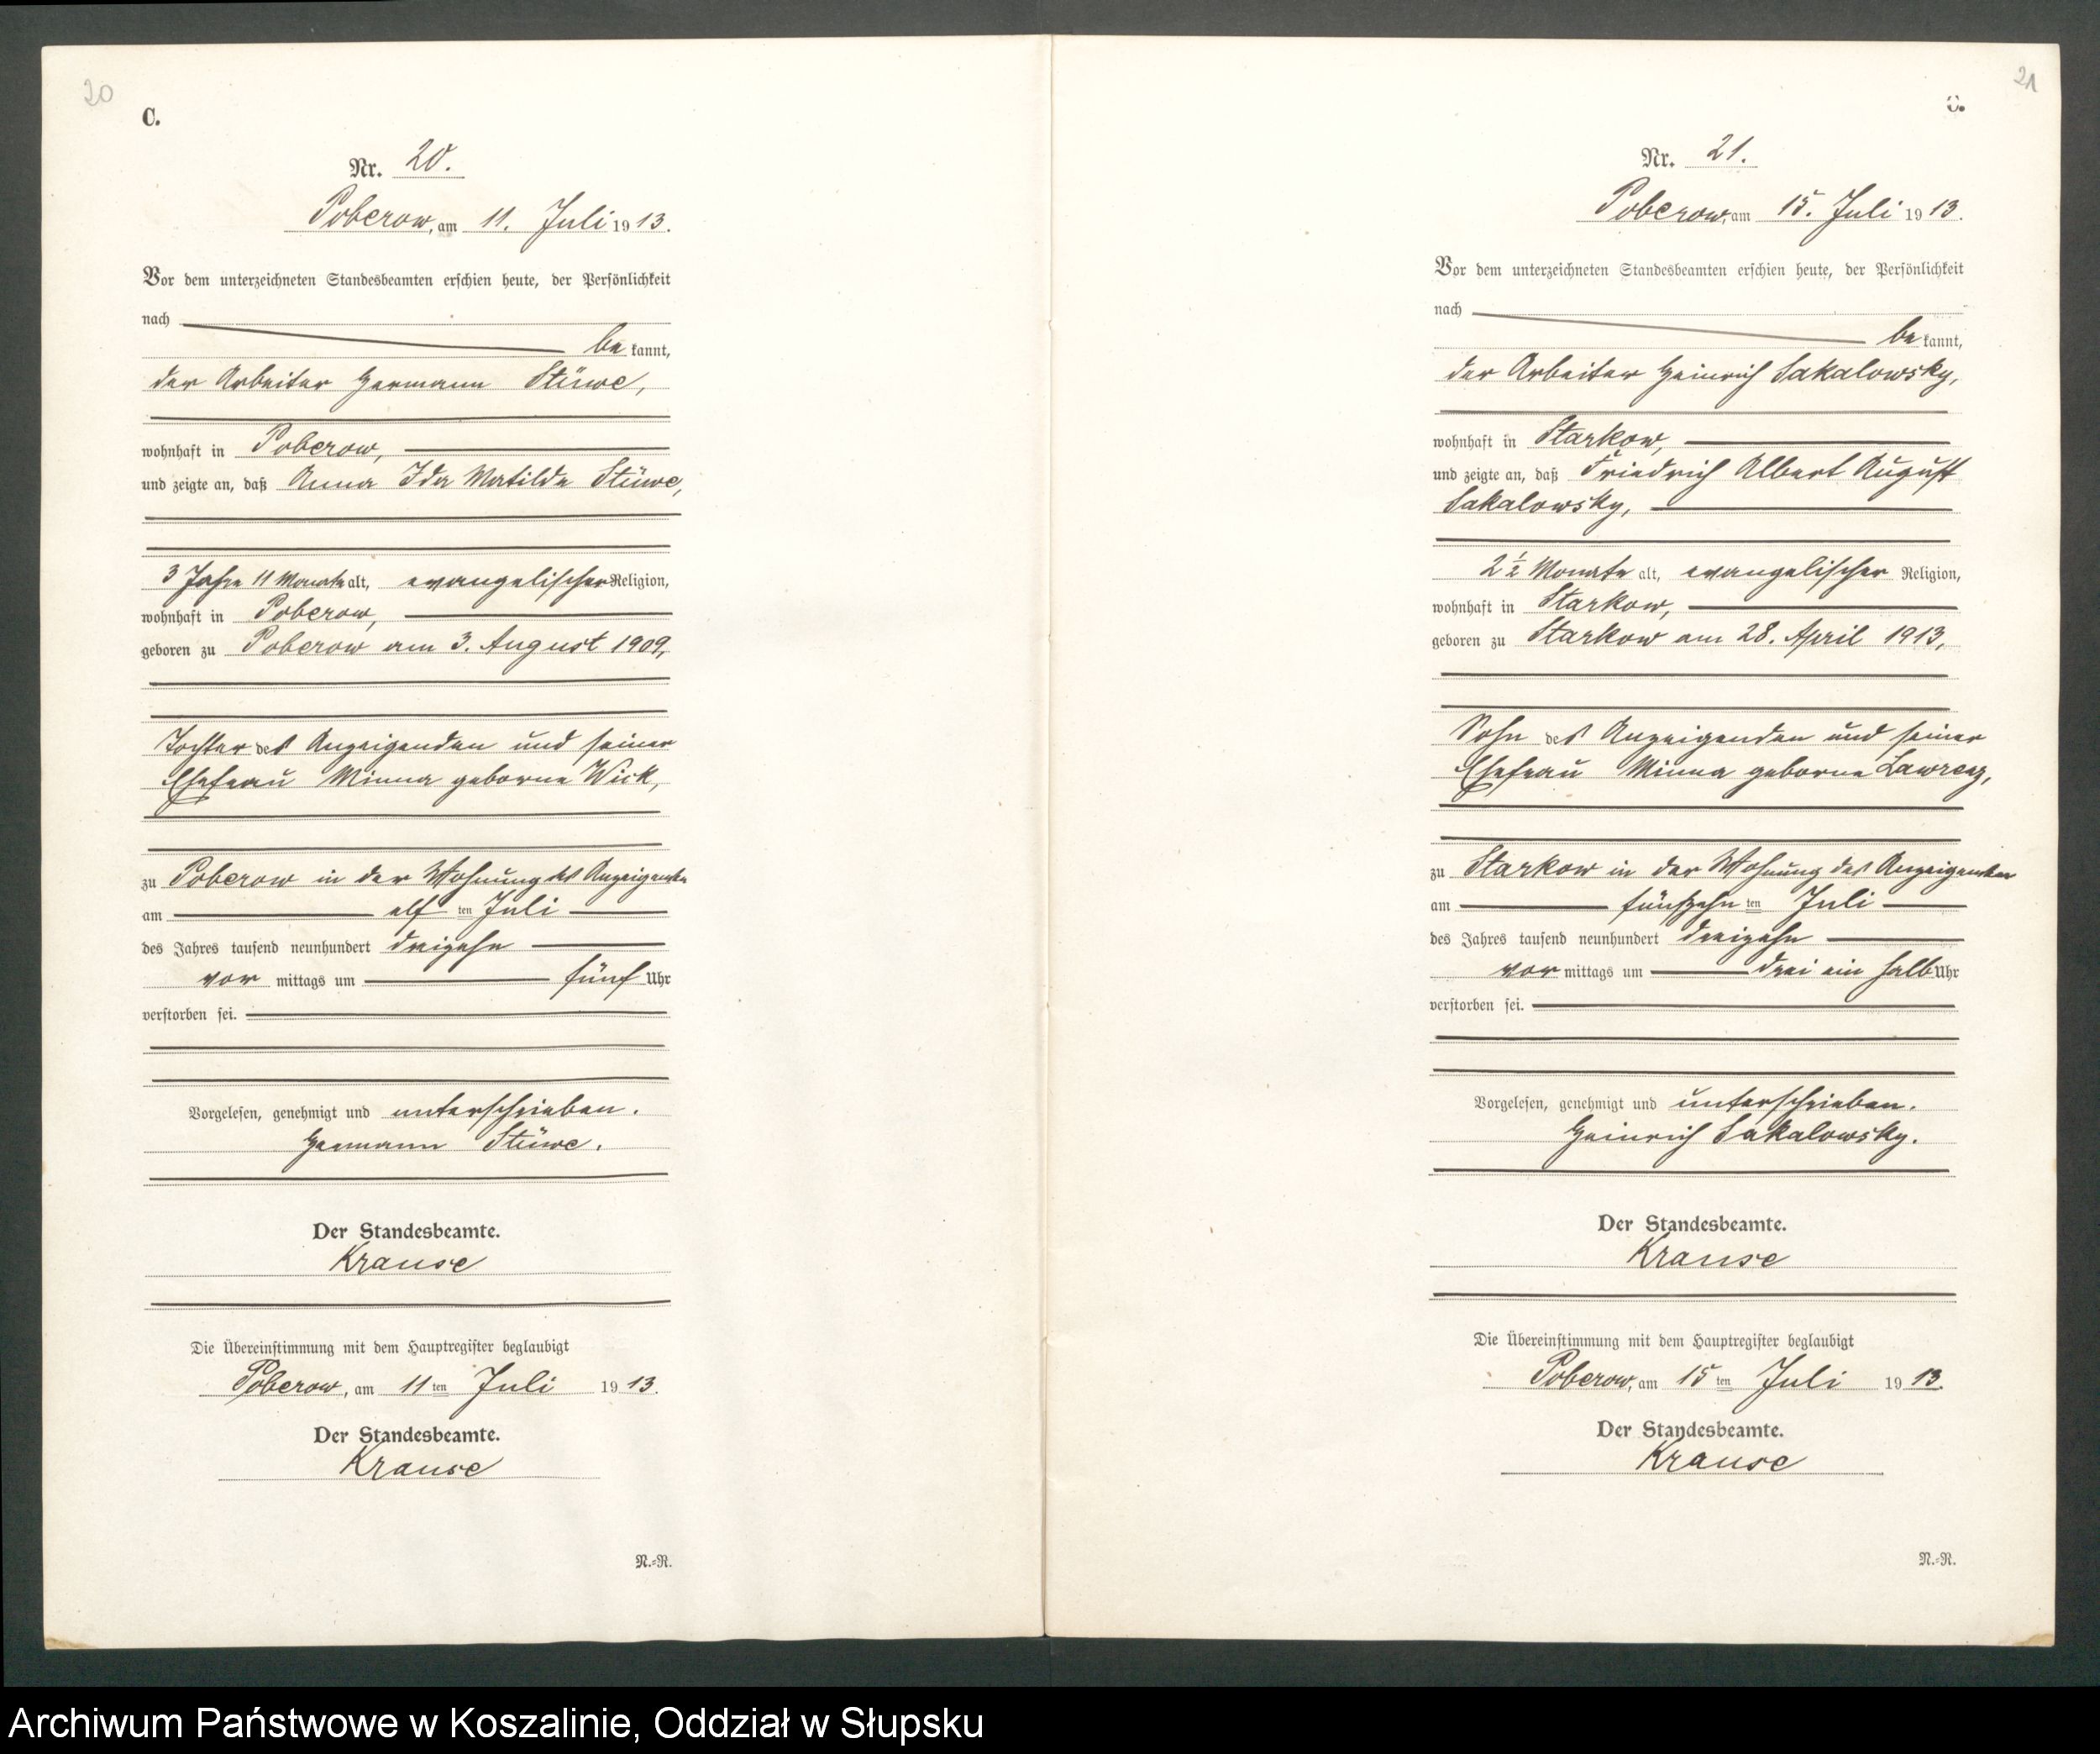 20
C.
Nr. 20.
Poberow, am 11. Juli 1913.
Vor dem unterzeichneten Standesbeamten erschien heute, der Persönlichkeit
nach
be kannt,
der Arbeiter Hermann Stüwe,
wohnhaft in Poberow,
und zeigte an, daß Anna Ida Matilde Stüwe,
3 Jahre 11 Monate alt, evangelischer Religion,
wohnhaft in Poberow,
geboren zu Poberow am 3. August 1909,
Tochter des Anzeigenden und seiner
Ehefrau Minna geborne Wick,
zu Poberow in der Wohnung des Anzeigenden
am elf ten Juli
des Jahres tausend neunhundert dreizehn
vor mittags um fünf Uhr
verstorben sei.
Vorgelesen, genehmigt und unterschrieben.
Hermann Stüwe.
Der Standesbeamte.
Krause
Die Übereinstimmung mit dem Hauptregister beglaubigt
Poberow, am 11 ten Juli 1913.
Der Standesbeamte.
Krause
N.=R.
21
C.
Nr. 21.
Poberow, am 15. Juli 1913.
Vor dem unterzeichneten Standesbeamten erschien heute, der Persönlichkeit
nach
be kannt,
der Arbeiter Heinrich Sakalowsky,
wohnhaft in Starkow,
und zeigte an, daß Friedrich Albert August
Sakalowsky,
2 ½ Monate alt, evangelischer Religion,
wohnhaft in Starkow,
geboren zu Starkow am 28. April 1913,
Sohn des Anzeigenden und seiner
Ehefrau Minna geborne Lawrenz,
zu Starkow in der Wohnung des Anzeigenden
am fünfzehn ten Juli
des Jahres tausend neunhundert dreizehn
vor mittags um drei ein halb Uhr
verstorben sei.
Vorgelesen, genehmigt und unterschrieben.
Heinrich Sakalowsky.
Der Standesbeamte.
Krause
Die Übereinstimmung mit dem Hauptregister beglaubigt
Poberow, am 15 ten Juli 1913.
Der Standesbeamte.
Krause
N.=R.
Archiwum Państwowe w Koszalinie, Oddział w Słupsku